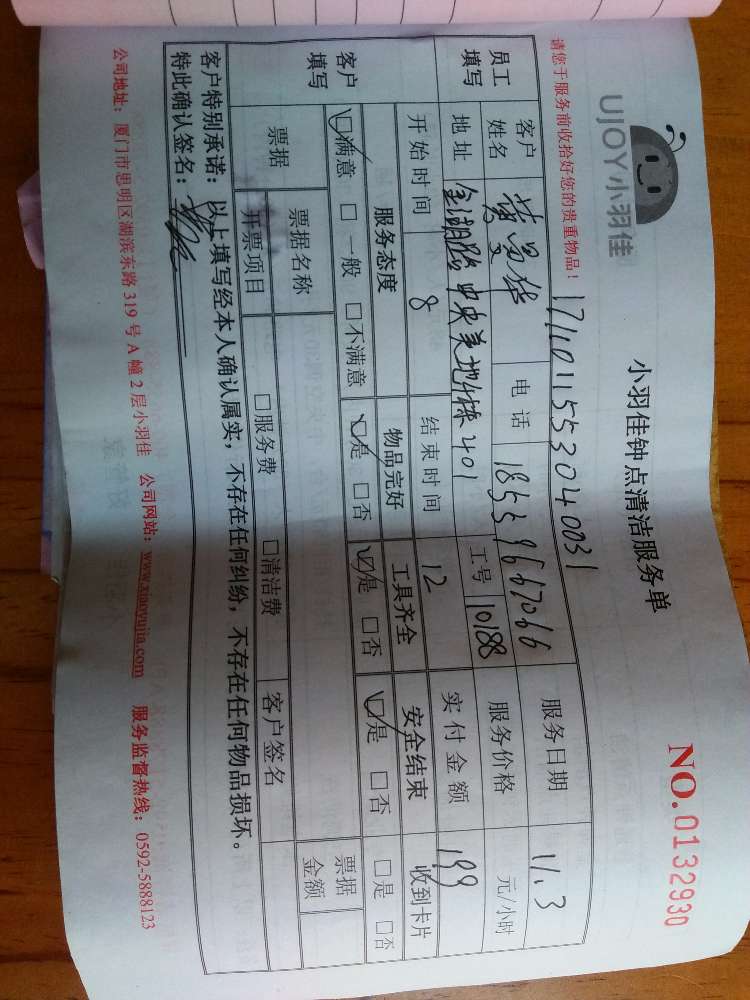 UJOY小羽佳
小羽佳钟点清洁服务单
NO.0132930
请您于服务前收拾好您的贵重物品！
1711011553040031
员工填写 客户姓名 电话 18559667066 服务日期 11.3
地址 金湖路中央美地4栋401 工号 10188 服务价格 元/小时
开始时间 8 结束时间 12 实付金额 199
客户填写 服务态度 物品完好 工具齐全 安全结束 收到卡片
☑满意 □一般 □不满意 ☑是 □否 ☑是 □否 ☑是 □否 □是 □否
票据 票据名称 票据金额
开票项目 □服务费 □清洁费 客户签名
客户特别承诺：以上填写经本人确认属实，不存在任何纠纷，不存在任何物品损坏。
特此确认签名：
公司地址：厦门市思明区湖滨东路319号A幢2层小羽佳 公司网站：www.xiaoyujia.com 服务监督热线：0592-5888123